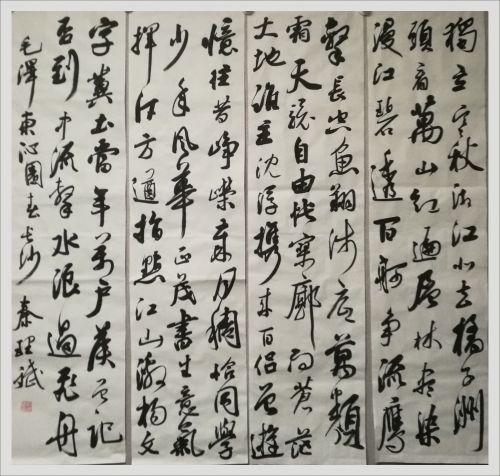 獨立寒秋湘江北去橘子洲
頭看萬山紅遍層林盡染
漫江碧透百舸争流鷹
擊長空魚翔淺底萬類
霜天競自由悵寥廓問蒼茫
大地誰主沈浮攜來百侣曾遊
憶往昔崢嶸歲月稠恰同學
少年風華正茂書生意氣
揮斥方遒指點江山激揚文
字糞土當年萬户侯曾記
否到中流擊水浪遏飛舟
毛澤東沁園春長沙 秦理斌